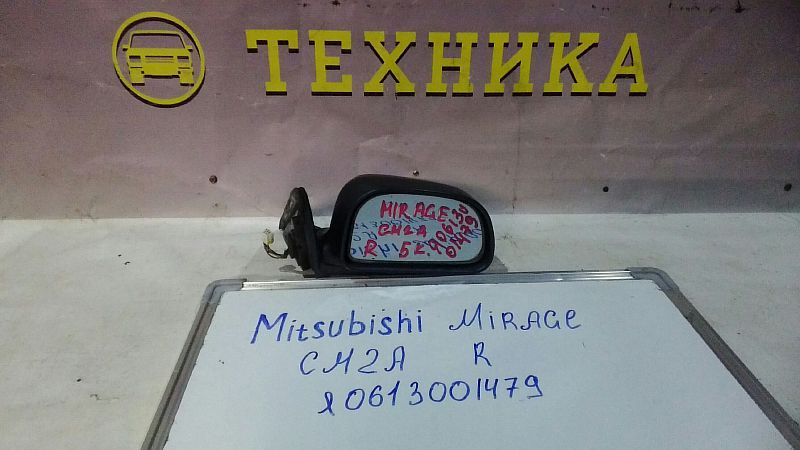 ТЕХНИКА
MIRAGE
CM2A
R 5 L.
Mitsubishi MiRAGE
CM2A R
Я0613001479